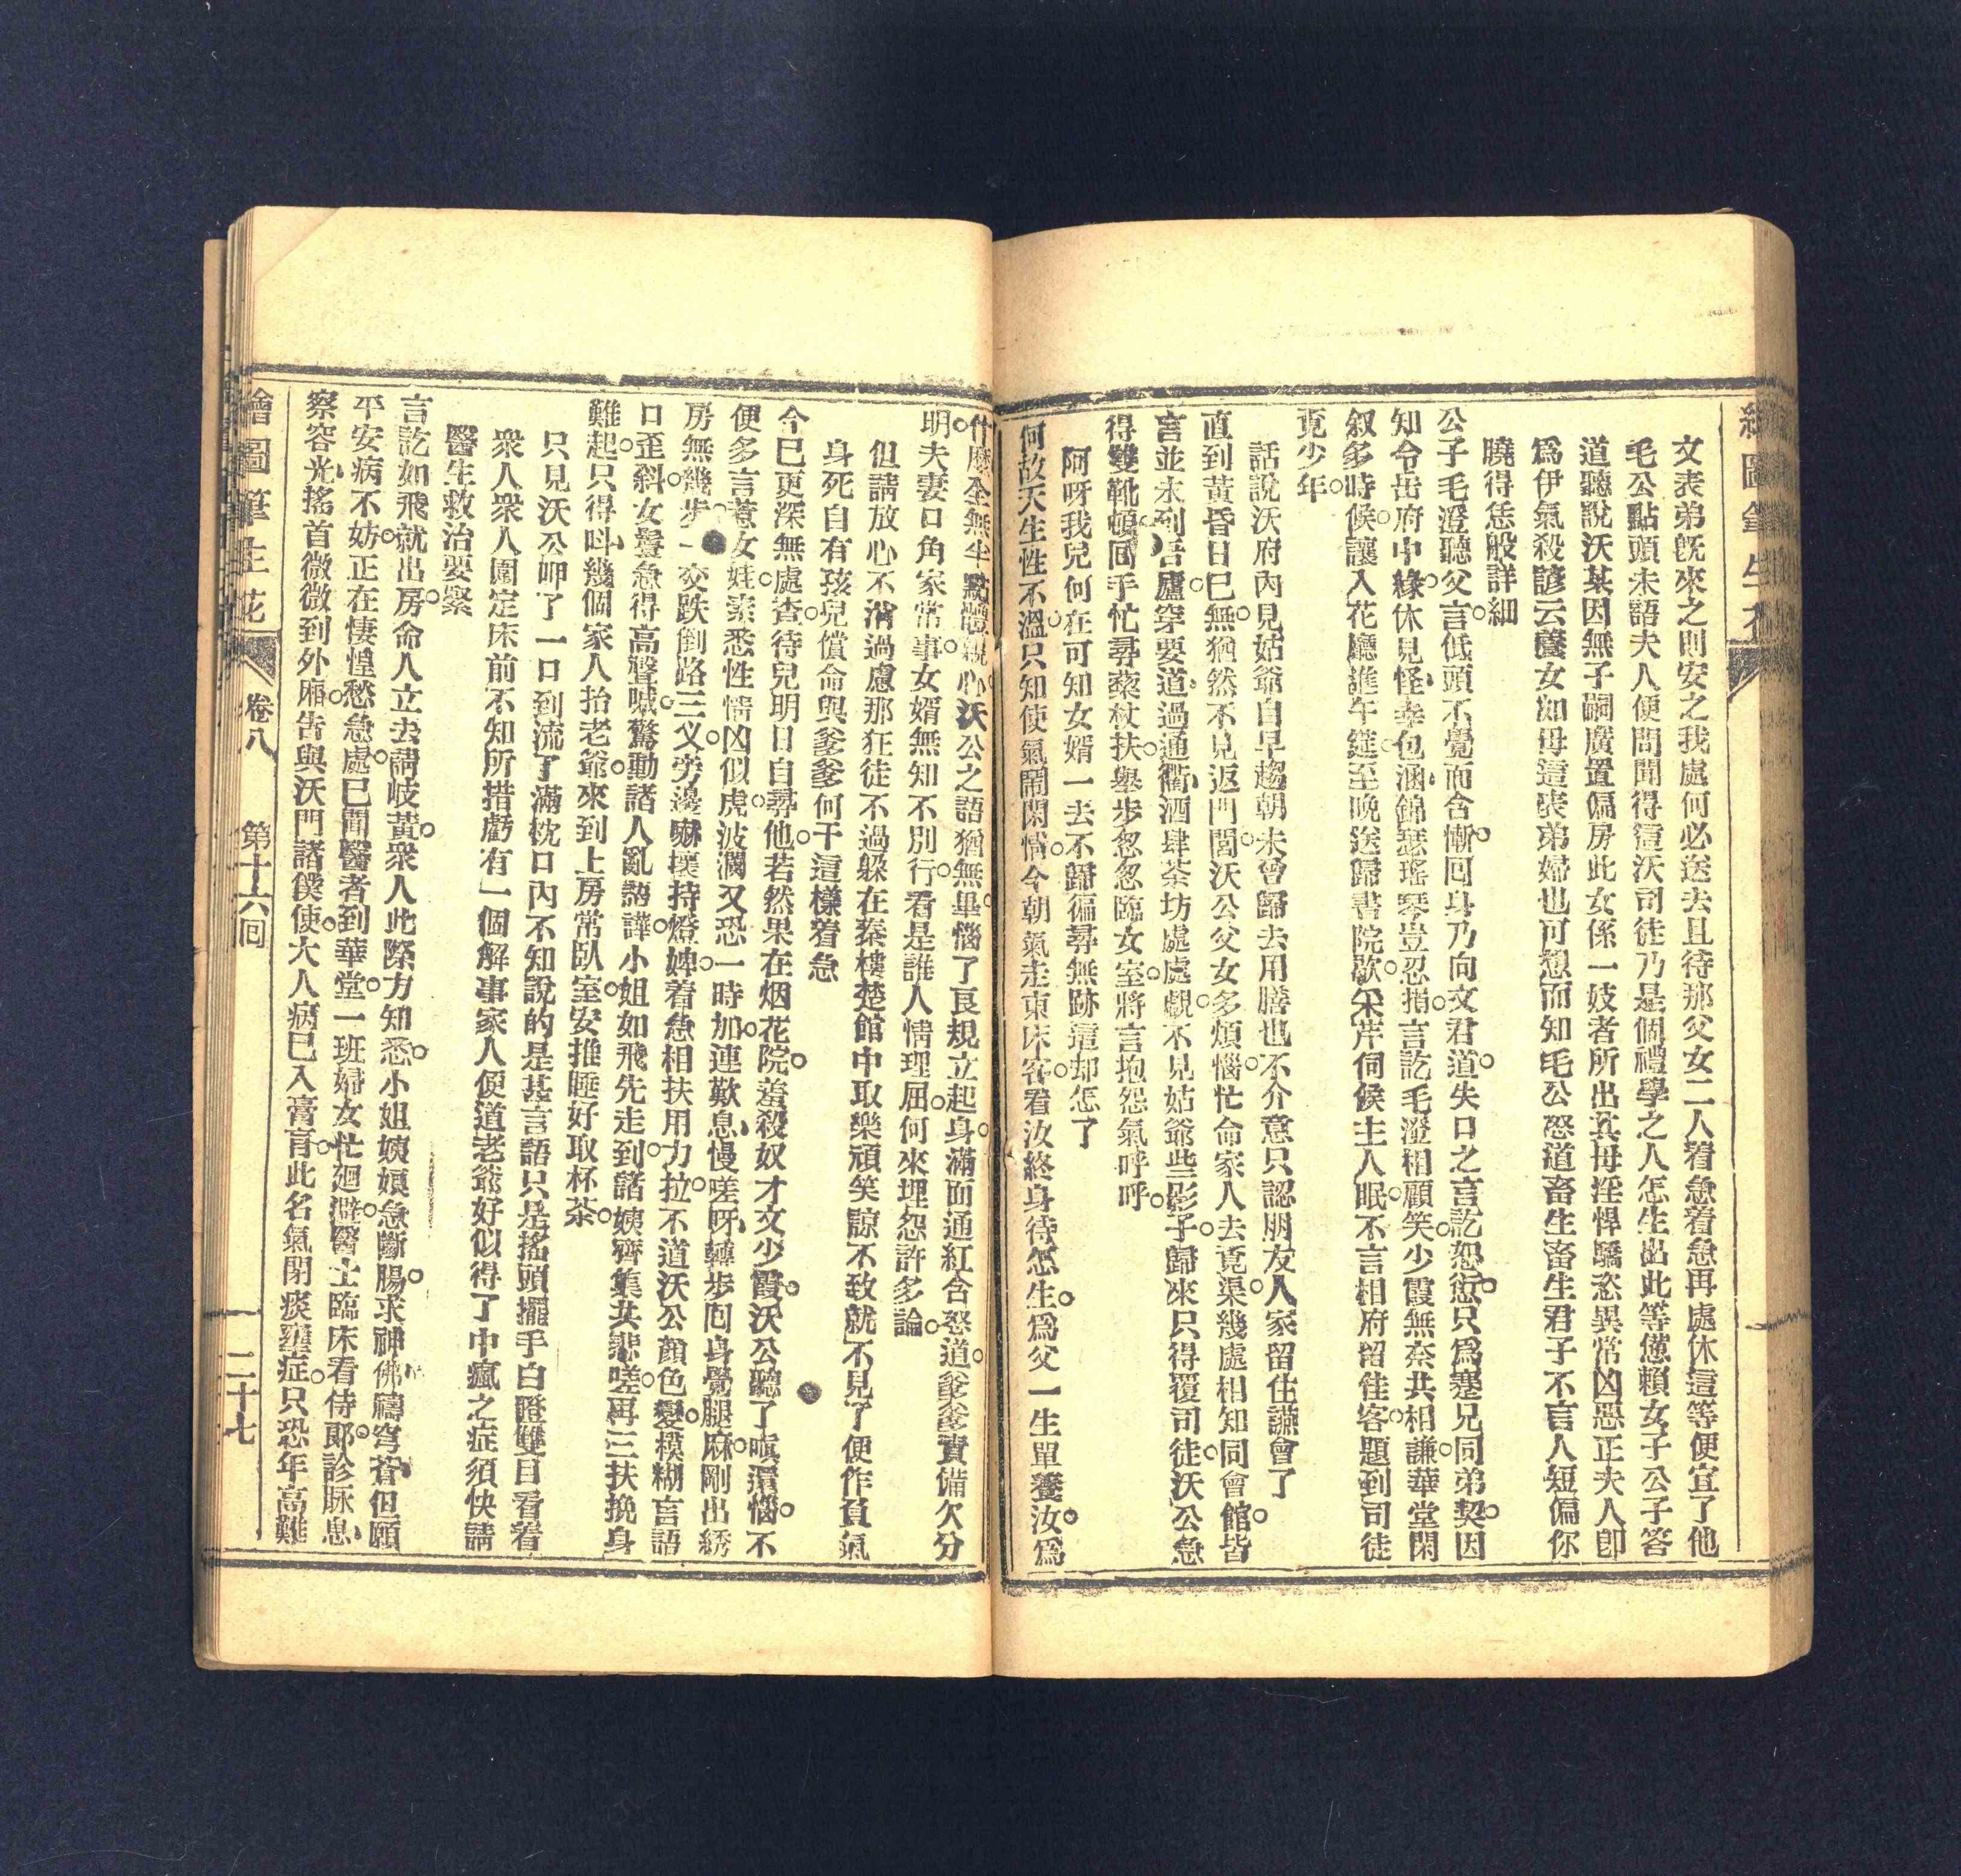 文表弟旣來之則安之我處何必送去且待那父女二人着急着急再處休這等便宜了他
毛公點頭未語夫人便問聞得這沃司徒乃是個禮學之人怎生出此等憊賴女子公子答
道聽說沃某因無子嗣廣置偏房此女係一妓者所出其母淫悍驕恣異常凶惡正夫人卽
爲伊氣殺諺云養女如母這表弟婦也可想而知毛公恐道畜生畜生君子不言人短偏你
曉得恁般詳細
公子毛澄聽父言。低頭不覺而含慚。回身乃向文君道。失口之言訖恕愆。只爲蹇兄同弟契。因
知令岳府中緣。休見怪、幸包涵、錦瑟瑤琴豈忍捐。言訖毛澄相顧笑。少霞無奈共相謙。華堂閑
叙多時候。讓入花廳進午筵。至晚送歸書院歇。采芹伺候主人眠。不言相府留佳客。題到司徒
覓少年。
話說沃府內見姑爺自早趨朝未曾歸去用膳也不介意只認朋友人家留住讌會了
直到黃昏日已無。猶然不見返門閭。沃公父女多煩惱。忙命家人去覓渠。幾處相知同會館。皆
言並未到吾廬。穿要道、過通衢、酒肆茶坊處處覷。不見姑爺些影子。歸來只得覆司徒。沃公急
得雙靴頓。回手忙尋藜杖扶。舉步忽忽臨女室。將言抱怨氣呼呼。
阿呀我兒何在可知女婿一去不歸徧尋無跡這却怎了
何故天生性不溫。只知使氣鬧閑情。今朝氣走東床客。看汝終身待怎生。爲父一生單養汝。爲
什麽全無半點體親心。沃公之語猶無畢。惱了良規立起身。滿面通紅含怒道。爹爹責備欠分
明。夫妻口角家常事。女婿無知不別行。看是誰人情理屈。何來埋怨許多論。
但請放心不消過慮那狂徒不過躱在秦樓楚館中取樂頑笑諒不致就不見了便作負氣
身死自有孩兒償命與爹爹何干這樣着急
今已更深無處查。待兒明日自尋他。若然果在烟花院。羞殺奴才文少霞。沃公聽了嗔還惱。不
便多言惹女娃。素悉性情凶似虎。波瀾又恐一時加。連歎息、慢嗟呀、轉步囘身覺腿麻。剛出綉
房無幾步。一交跌倒路三义。旁邊嚇壞持燈婢。着急相扶用力拉。不道沃公顔色變。模糊言語
口歪斜。女鬟急得高聲喊。驚動諸人亂譸譁。小姐如飛先走到。諸姨齊集共悲嗟。再三扶挽身
難起。只得呌幾個家人抬老爺。來到上房常臥室。安推睡好取杯茶。
只見沃公呷了一口到流了滿枕口內不知說的是甚言語只是搖頭擺手白瞪雙目看着
衆人衆人圍定床前不知所措虧有一個解事家人便道老爺好似得了中瘋之症須快請
醫生救治要緊
言訖如飛就出房。命人立去請岐黃。衆人此際方知悉。小姐姨娘急斷腸。求神佛、禱穹蒼、但願
平安病不妨。正在悽惶愁急處。已聞醫者到華堂。一班婦女忙廻避。醫士臨床看侍郞。診脈息、
察容光、搖首微微到外廂。告與沃門諸僕使。大人病已入膏肓。此名氣閉痰壅症。只恐年高難
繪圖筆生花
卷八
第十六回
二十七